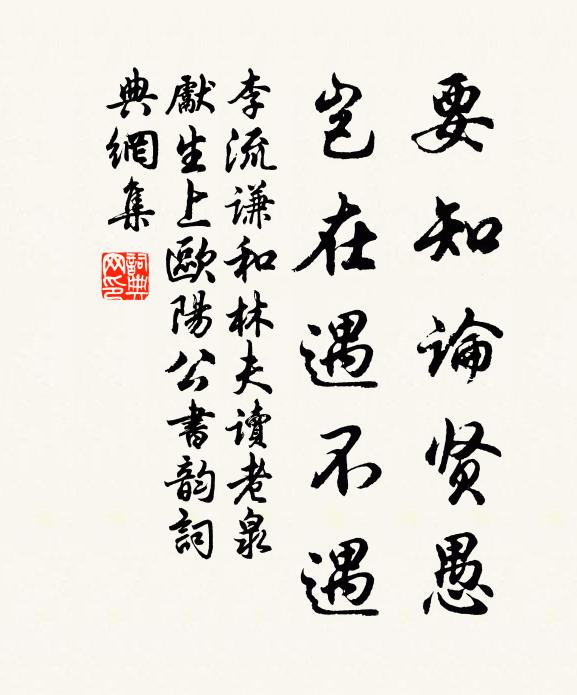 要知论贤愚
岂在遇不遇
李流谦和林夫读老泉
献生上欧阳公书韵词
典网集
词典网印